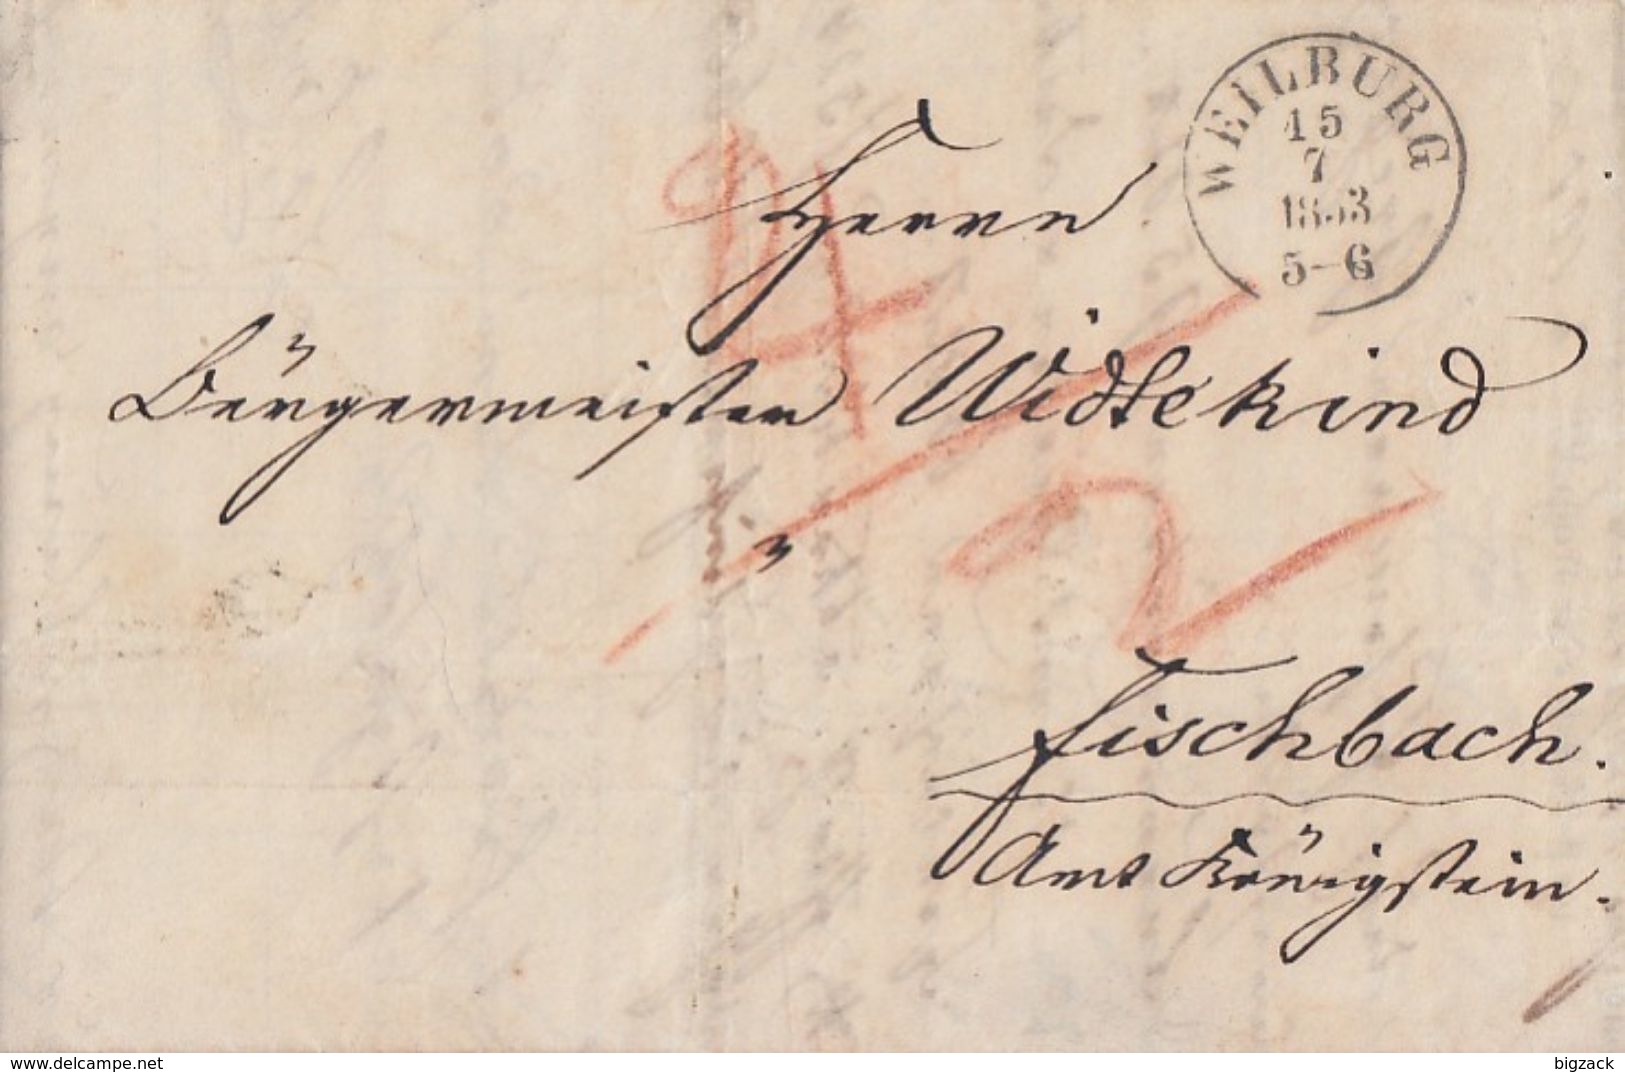 WEILBURG
15
7
1853
5-6
Herrn
Bürgermeister Widtekind
in
Fischbach.
Amt Königstein.
2
www.delcampe.net
bigzack